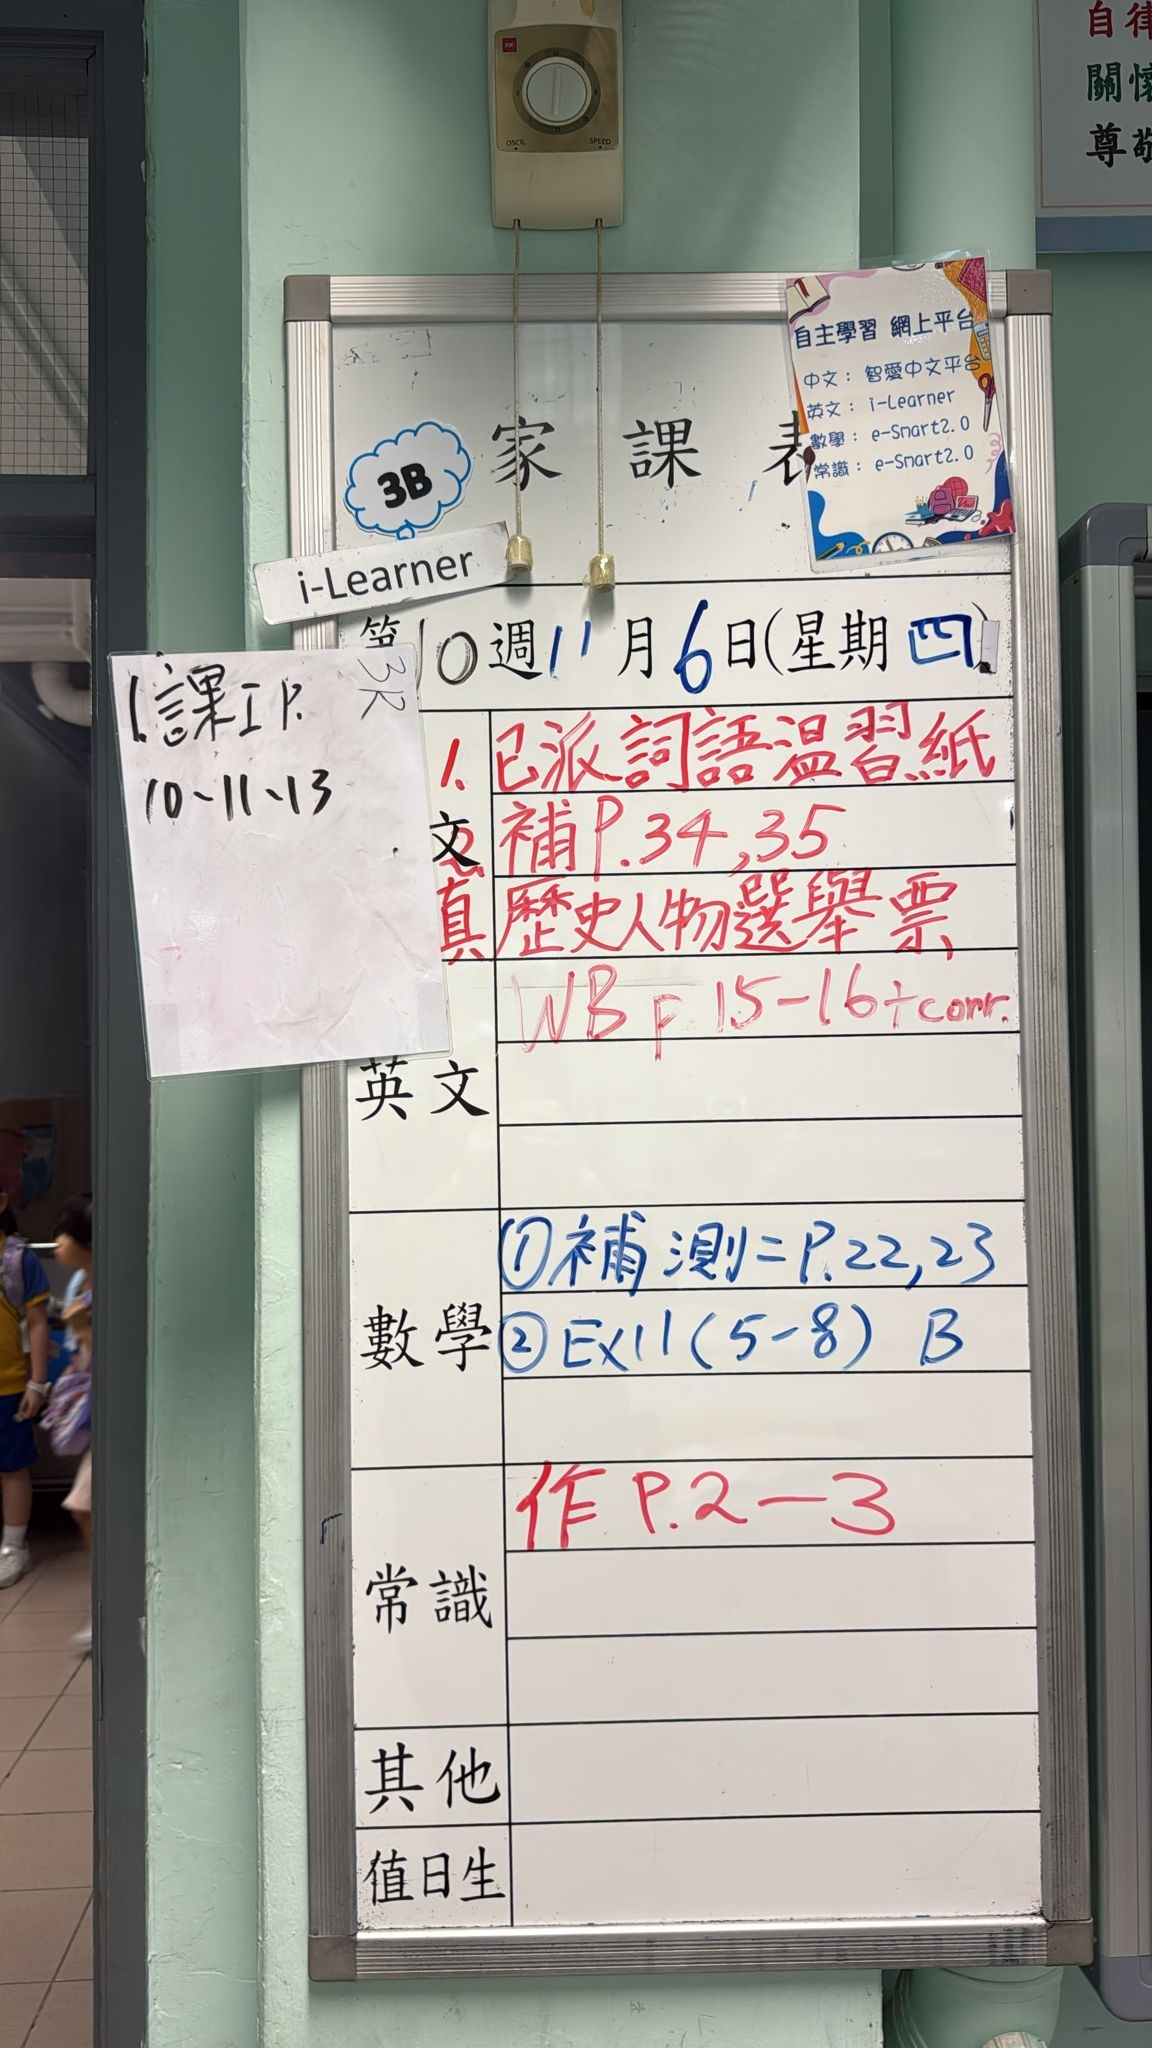 OSCIL SPEED
自律
關懷
尊敬
自主學習 網上平台
中文： 智愛中文平台
英文： i-Learner
數學： e-Smart2.0
常識： e-Smart2.0
3B 家課表
i-Learner
第10週11月6日(星期四)
3R
1.課工P.
10、11、13
1. 已派詞語溫習紙
文 2. 補P.34,35
填 歷史人物選舉票
WB P 15-16+corr.
英文
①補測二P.22,23
數學 ②Ex11(5-8) B
作P.2-3
常識
其他
值日生